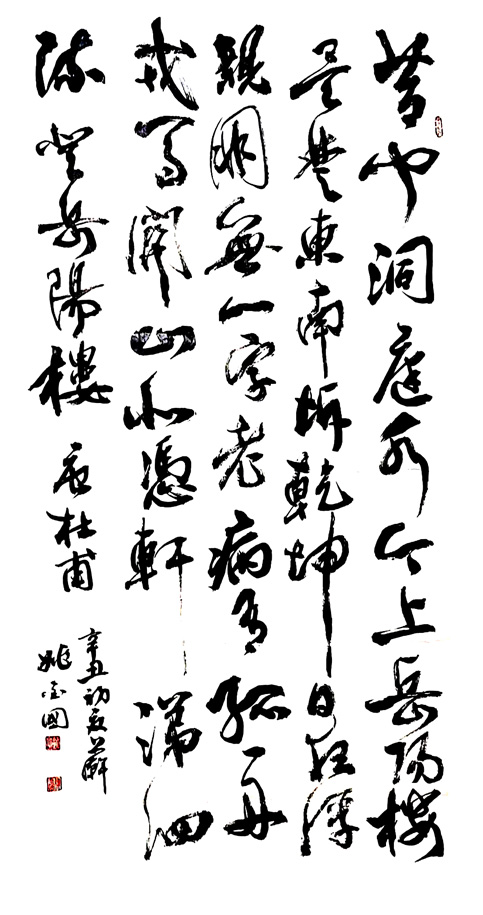 昔闻洞庭水今上岳陽樓
吳楚東南坼乾坤日夜浮
親朋無一字老病有孤舟
戎馬關山北憑軒涕泗
流登岳陽樓 唐杜甫
辛丑初夏
姚國